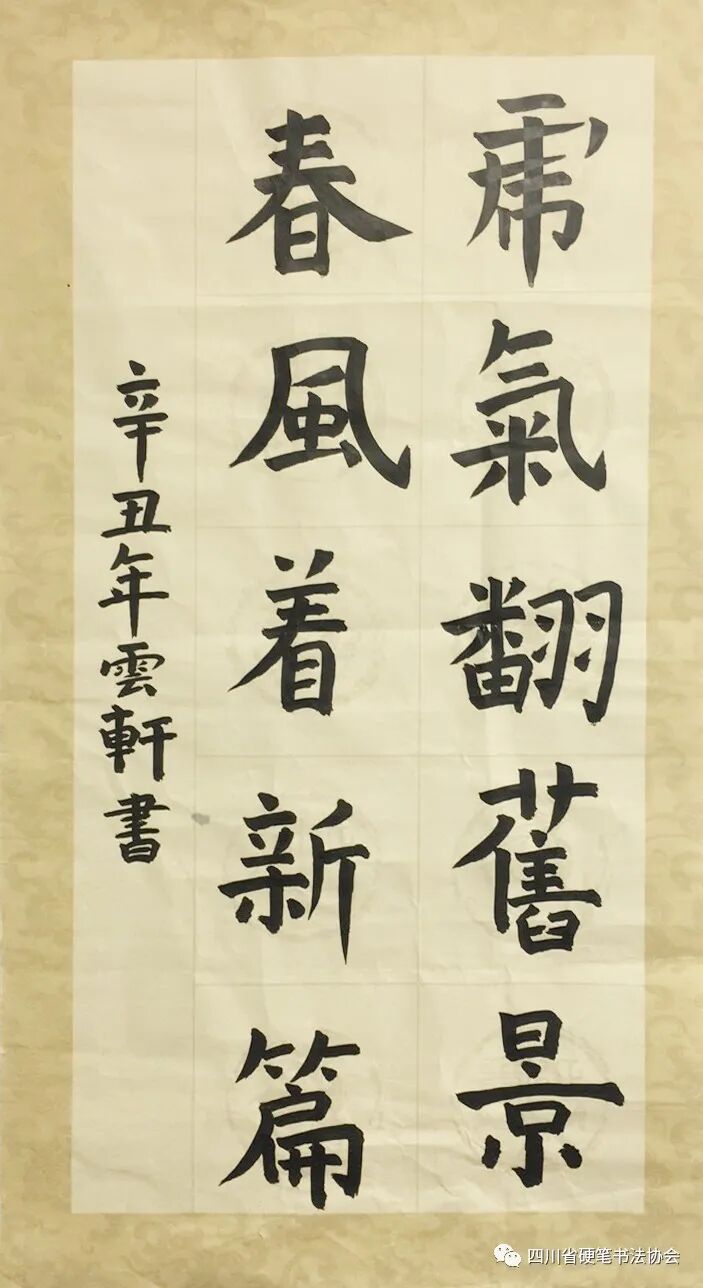 虎氣翻舊景
春風着新篇
辛丑年雲軒書
四川省硬笔书法协会